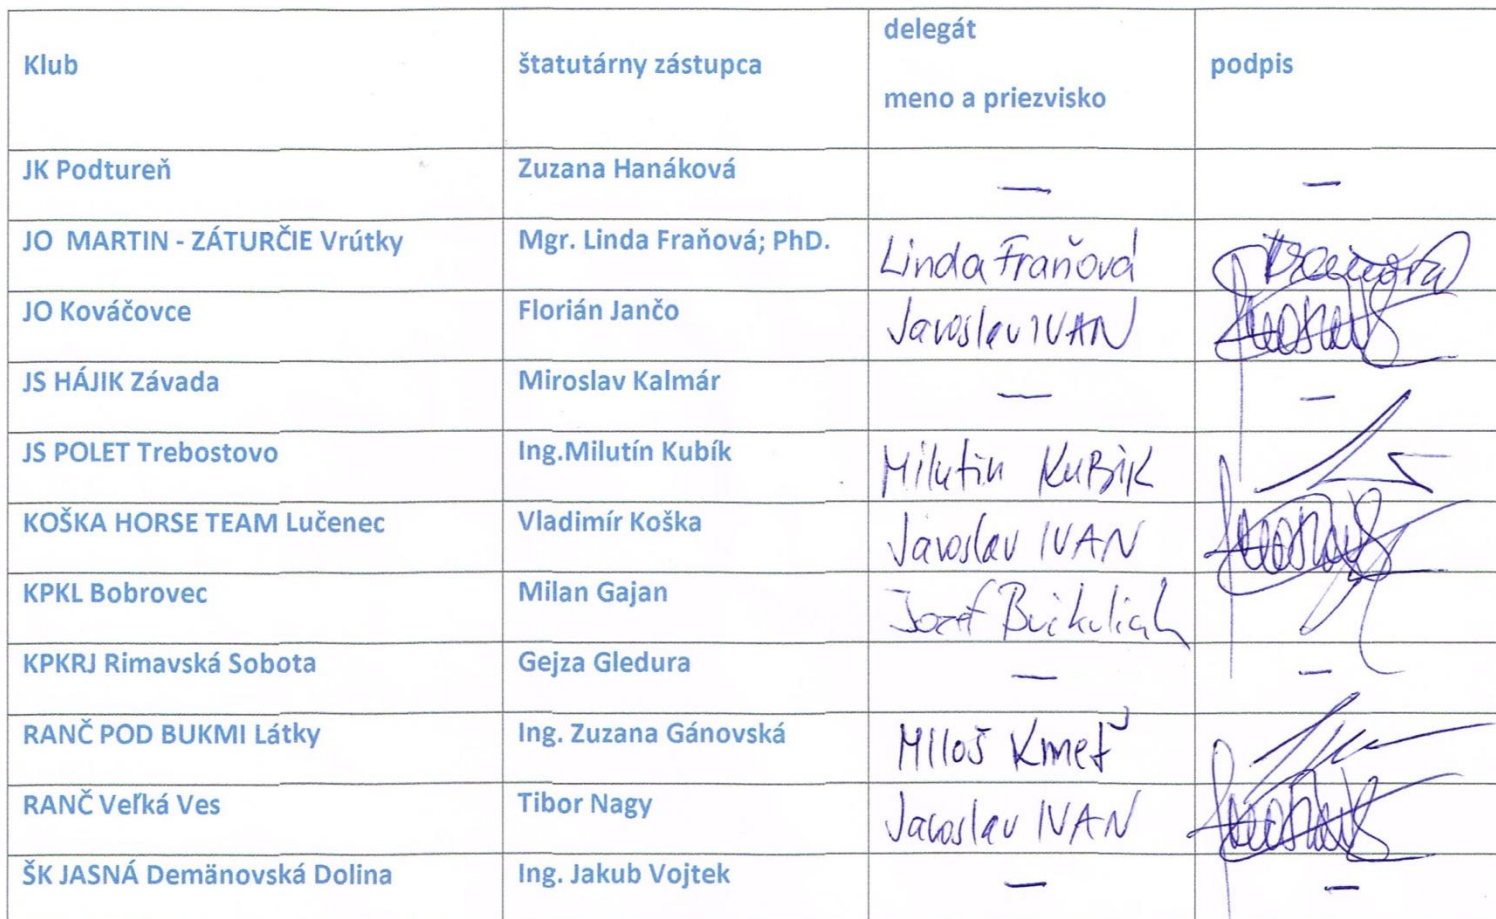 Klub štatutárny zástupca delegát meno a priezvisko podpis
JK Podtureň Zuzana Hanáková — —
JO MARTIN - ZÁTURČIE Vrútky Mgr. Linda Fraňová; PhD. Linda Fraňová
JO Kováčovce Florián Jančo Jaroslav IVAN
JS HÁJIK Závada Miroslav Kalmár — —
JS POLET Trebostovo Ing.Milutín Kubík Milutin KUBÍK
KOŠKA HORSE TEAM Lučenec Vladimír Koška Jaroslav IVAN
KPKL Bobrovec Milan Gajan Jozef
KPKRJ Rimavská Sobota Gejza Gledura — —
RANČ POD BUKMI Látky Ing. Zuzana Gánovská Miloš Kmeť
RANČ Veľká Ves Tibor Nagy Jaroslav IVAN
ŠK JASNÁ Demänovská Dolina Ing. Jakub Vojtek — —